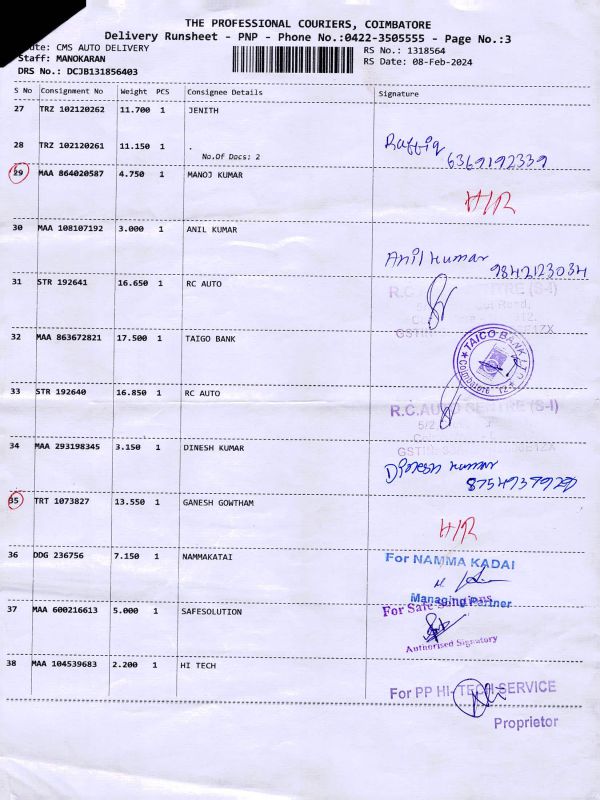 THE PROFESSIONAL COURIERS, COIMBATORE
Delivery Runsheet - PNP - Phone No.:0422-3505555 - Page No.:3
CMS AUTO DELIVERY
RS No.: 1318564
Staff: MANOKARAN
RS Date: 08-Feb-2024
DRS No.: DCJB131856403
S No Consignment No Weight PCS Consignee Details Signature
27 TRZ 102120262 11.700 1 JENITH
28 TRZ 102120261 11.150 1 .
No.Of Docs: 2
Raffiq
6369192339
29 MAA 864020587 4.750 1 MANOJ KUMAR
H/R
30 MAA 108107192 3.000 1 ANIL KUMAR
Anil kumar
9842123034
31 STR 192641 16.650 1 RC AUTO
32 MAA 863672821 17.500 1 TAIGO BANK
TAICO BANK LTD
33 STR 192640 16.850 1 RC AUTO
R.C.AUTO CENTRE (S-I)
34 MAA 293198345 3.150 1 DINESH KUMAR
Dinesh kumar
35 TRT 1073827 13.550 1 GANESH GOWTHAM
H/R
36 DDG 236756 7.150 1 NAMMAKATAI
For NAMMA KADAI
Managing Partner
37 MAA 600216613 5.000 1 SAFESOLUTION
For Safe Solutions
Authorised Signatory
38 MAA 104539683 2.200 1 HI TECH
For PP HI-TECH SERVICE
Proprietor